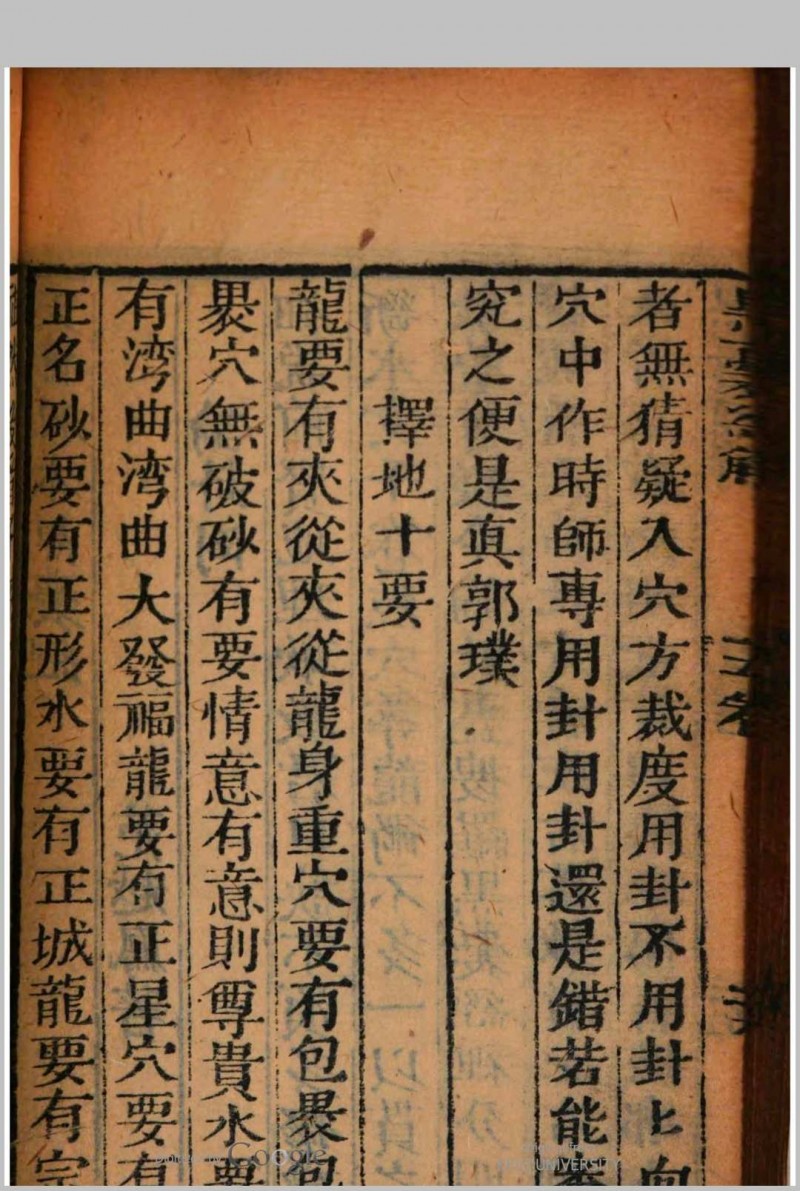 者無猜疑入穴方裁度用卦不用卦上向
穴中作時師專用卦用卦還是錯若能
究之便是真郭璞
擇地十要
龍要有夾從夾從龍身重穴要有包褁包
褁穴無破砂有要情意有意則尊貴水要
有湾曲湾曲大發福龍要有正星穴要有
正名砂要有正形水要有正城龍要有宗
Google
UNIVERSITY